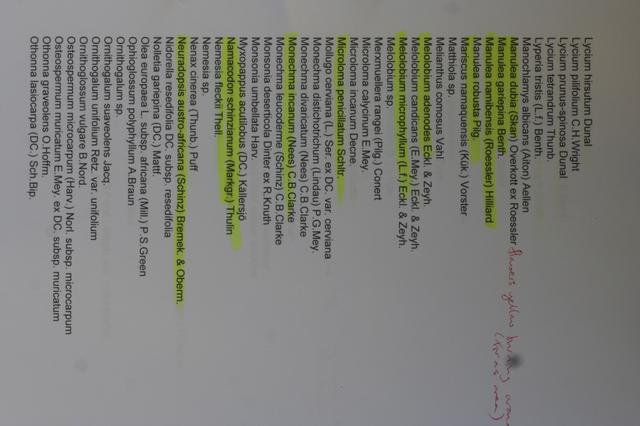 Lycium hirsutum Dunal
Lycium pilifolium C.H.Wright
Lycium prunus-spinosa Dunal
Lycium tetrandrum Thunb.
Lyperia tristis (L.f.) Benth.
Manochlamys albicans (Aiton) Aellen
Manulea dubia (Skan) Overkott ex Roessler flowers yellow
Manulea gariepina Benth.
Manulea namibensis (Roessler) Hilliard
Manulea robusta Pilg.
Mariscus namaquensis (Kük.) Vorster
Matthiola sp.
Melianthus comosus Vahl
Melolobium adenodes Eckl. & Zeyh.
Melolobium candicans (E.Mey.) Eckl. & Zeyh.
Melolobium microphyllum (L.f.) Eckl. & Zeyh.
Melolobium sp.
Merxmuellera rangei (Pilg.) Conert
Microloma calycinum E.Mey.
Microloma incanum Decne.
Microloma penicillatum Schltr.
Mollugo cerviana (L.) Ser. ex DC. var. cerviana
Monechma distichotrichum (Lindau) P.G.Mey.
Monechma divaricatum (Nees) C.B.Clarke
Monechma incanum (Nees) C.B.Clarke
Monechma leucoderme (Schinz) C.B.Clarke
Monsonia deserticola Dinter ex R.Knuth
Monsonia umbellata Harv.
Myxopappus acutilobus (DC.) Källersjö
Namacodon schinzianum (Markgr.) Thulin
Nemesia fleckii Thell.
Nemesia sp.
Nenax cinerea (Thunb.) Puff
Neuradopsis austro-africana (Schinz) Bremek. & Oberm.
Nidorella resedifolia DC. subsp. resedifolia
Nolletia gariepina (DC.) Mattf.
Olea europaea L. subsp. africana (Mill.) P.S.Green
Ophioglossum polyphyllum A.Braun
Ornithogalum sp.
Ornithogalum suaveolens Jacq.
Ornithogalum unifolium Retz. var. unifolium
Ornithoglossum vulgare B.Nord.
Osteospermum microcarpum (Harv.) Norl. subsp. microcarpum
Osteospermum muricatum E.Mey. ex DC. subsp. muricatum
Othonna graveolens O.Hoffm.
Othonna lasiocarpa (DC.) Sch.Bip.